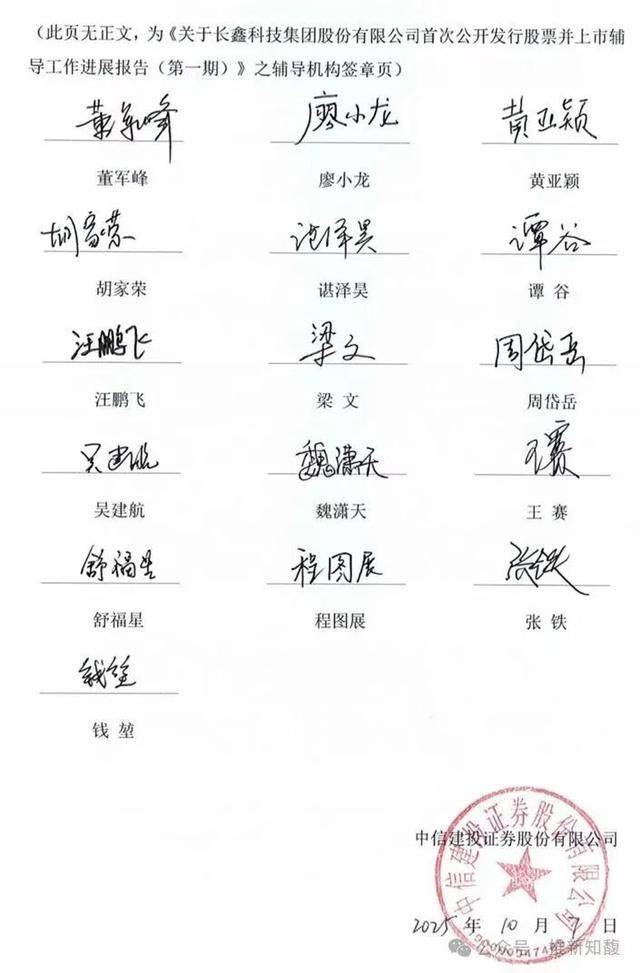 （此页无正文，为《关于长鑫科技集团股份有限公司首次公开发行股票并上市辅
导工作进展报告（第一期）》之辅导机构签章页）
董军峰 廖小龙 黄亚颖
董军峰 廖小龙 黄亚颖
胡家荣 谌泽昊 谭谷
胡家荣 谌泽昊 谭 谷
汪鹏飞 梁文 周岱岳
汪鹏飞 梁 文 周岱岳
吴建航 魏潇天 王赛
吴建航 魏潇天 王 赛
舒福星 程图展 张铁
舒福星 程图展 张 铁
钱堃
钱 堃
中信建投证券股份有限公司
中信建投证券股份有限公司
2025 年 10 月 9 日
公众号 · 维新知馥